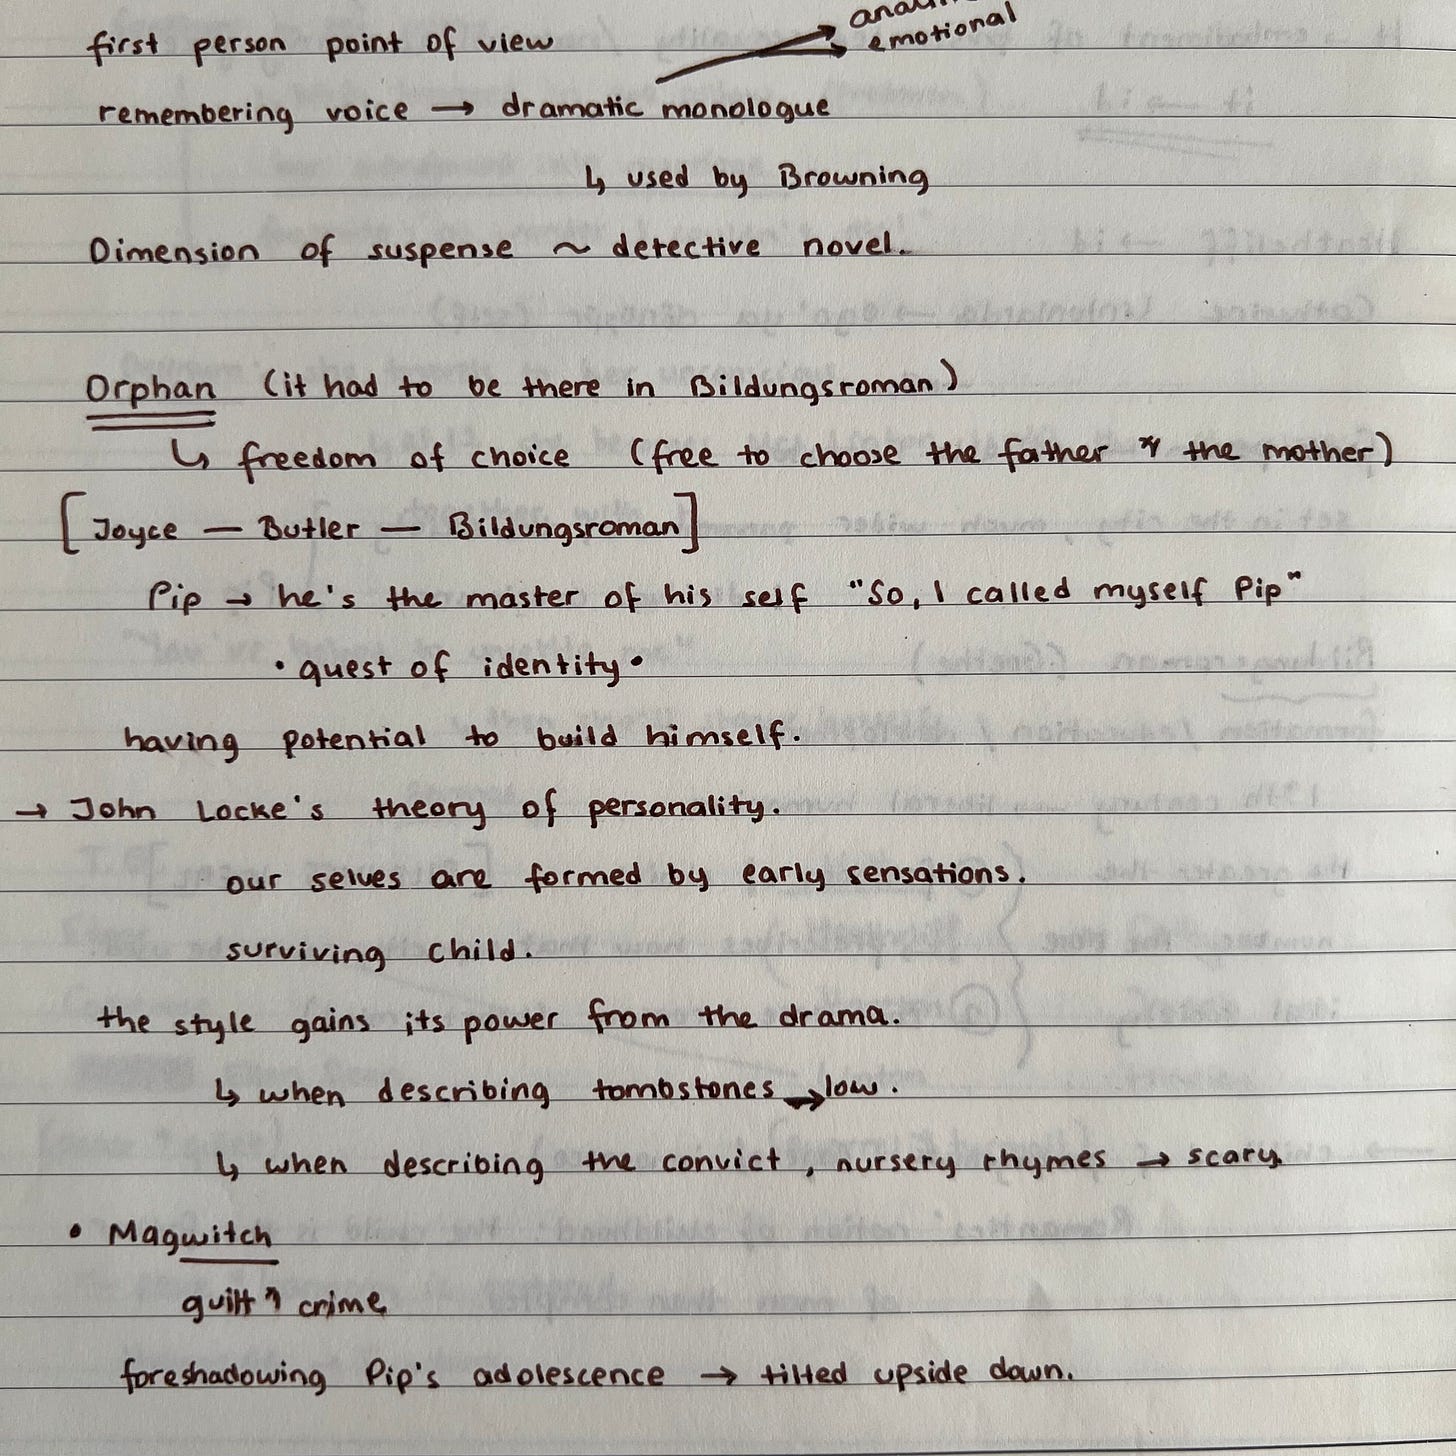 emotional
first person point of view
remembering voice → dramatic monologue
↳ used by Browning
Dimension of suspense ~ detective novel.
Orphan (it had to be there in Bildungsroman)
↳ freedom of choice (free to choose the father & the mother)
[Joyce — Butler — Bildungsroman]
Pip → he's the master of his self "So, I called myself Pip"
• quest of identity •
having potential to build himself.
→ John Locke's theory of personality.
our selves are formed by early sensations.
surviving child.
the style gains its power from the drama.
↳ when describing tombstones → low.
↳ when describing the convict, nursery rhymes → scary
• Magwitch
guilt & crime
foreshadowing Pip's adolescence → tilted upside down.